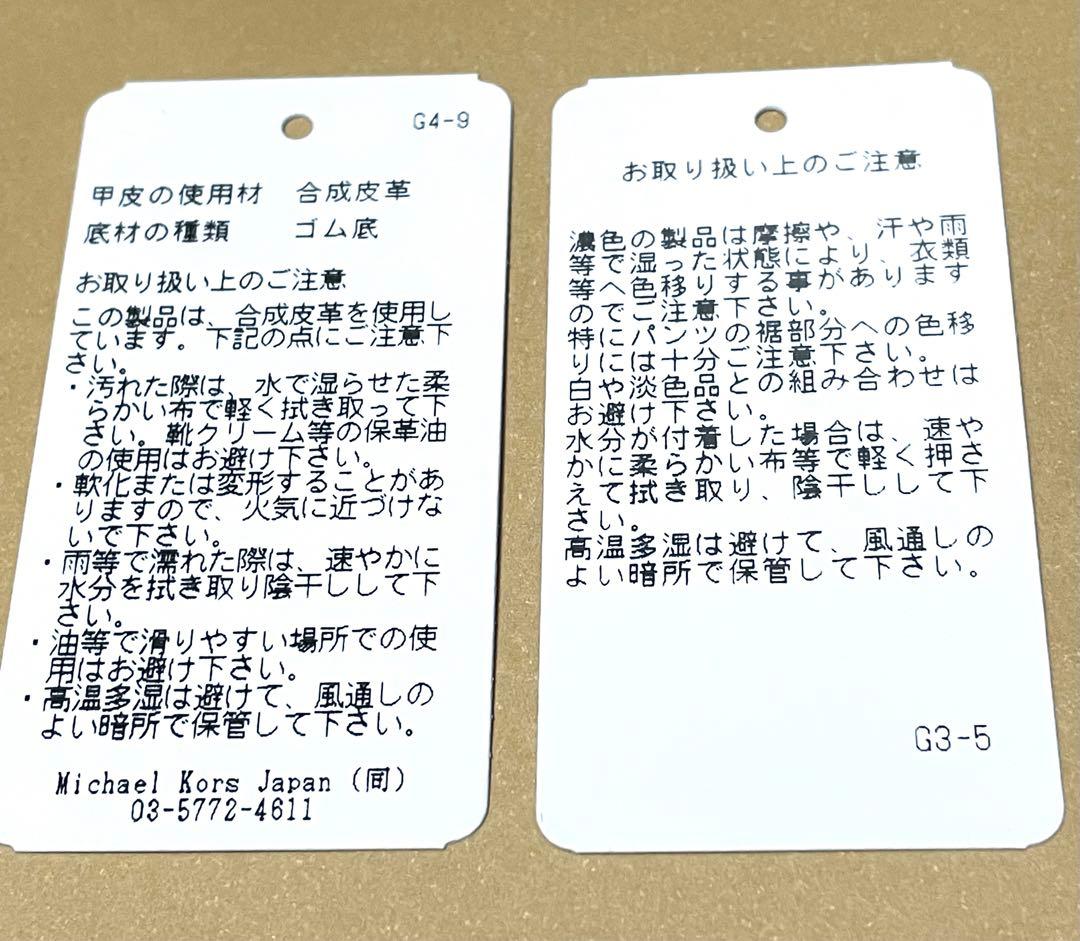 G4-9
甲皮の使用材 合成皮革
底材の種類 ゴム底
お取り扱い上のご注意
この製品は、合成皮革を使用し
ています。下記の点にご注意下
さい。
・汚れた際は、水で湿らせた柔
らかい布で軽く拭き取って下
さい。靴クリーム等の保革油
の使用はお避け下さい。
・軟化または変形することがあ
りますので、火気に近づけな
いで下さい。
・雨等で濡れた際は、速やかに
水分を拭き取り陰干しして下
さい。
・油等で滑りやすい場所での使
用はお避け下さい。
・高温多湿は避けて、風通しの
よい暗所で保管して下さい。
Michael Kors Japan (同)
03-5772-4611
お取り扱い上のご注意
濃色の製品は摩擦や、汗や雨
等で湿った状態により、衣類
等へ色移りする事があります
のでご注意下さい。
特にパンツの裾部分への色移
りには十分ご注意下さい。
白や淡色品との組み合わせは
お避け下さい。
水分が付着した場合は、速や
かに柔らかい布等で軽く押さ
えて拭き取り、陰干しして下
さい。
高温多湿は避けて、風通しの
よい暗所で保管して下さい。
G3-5